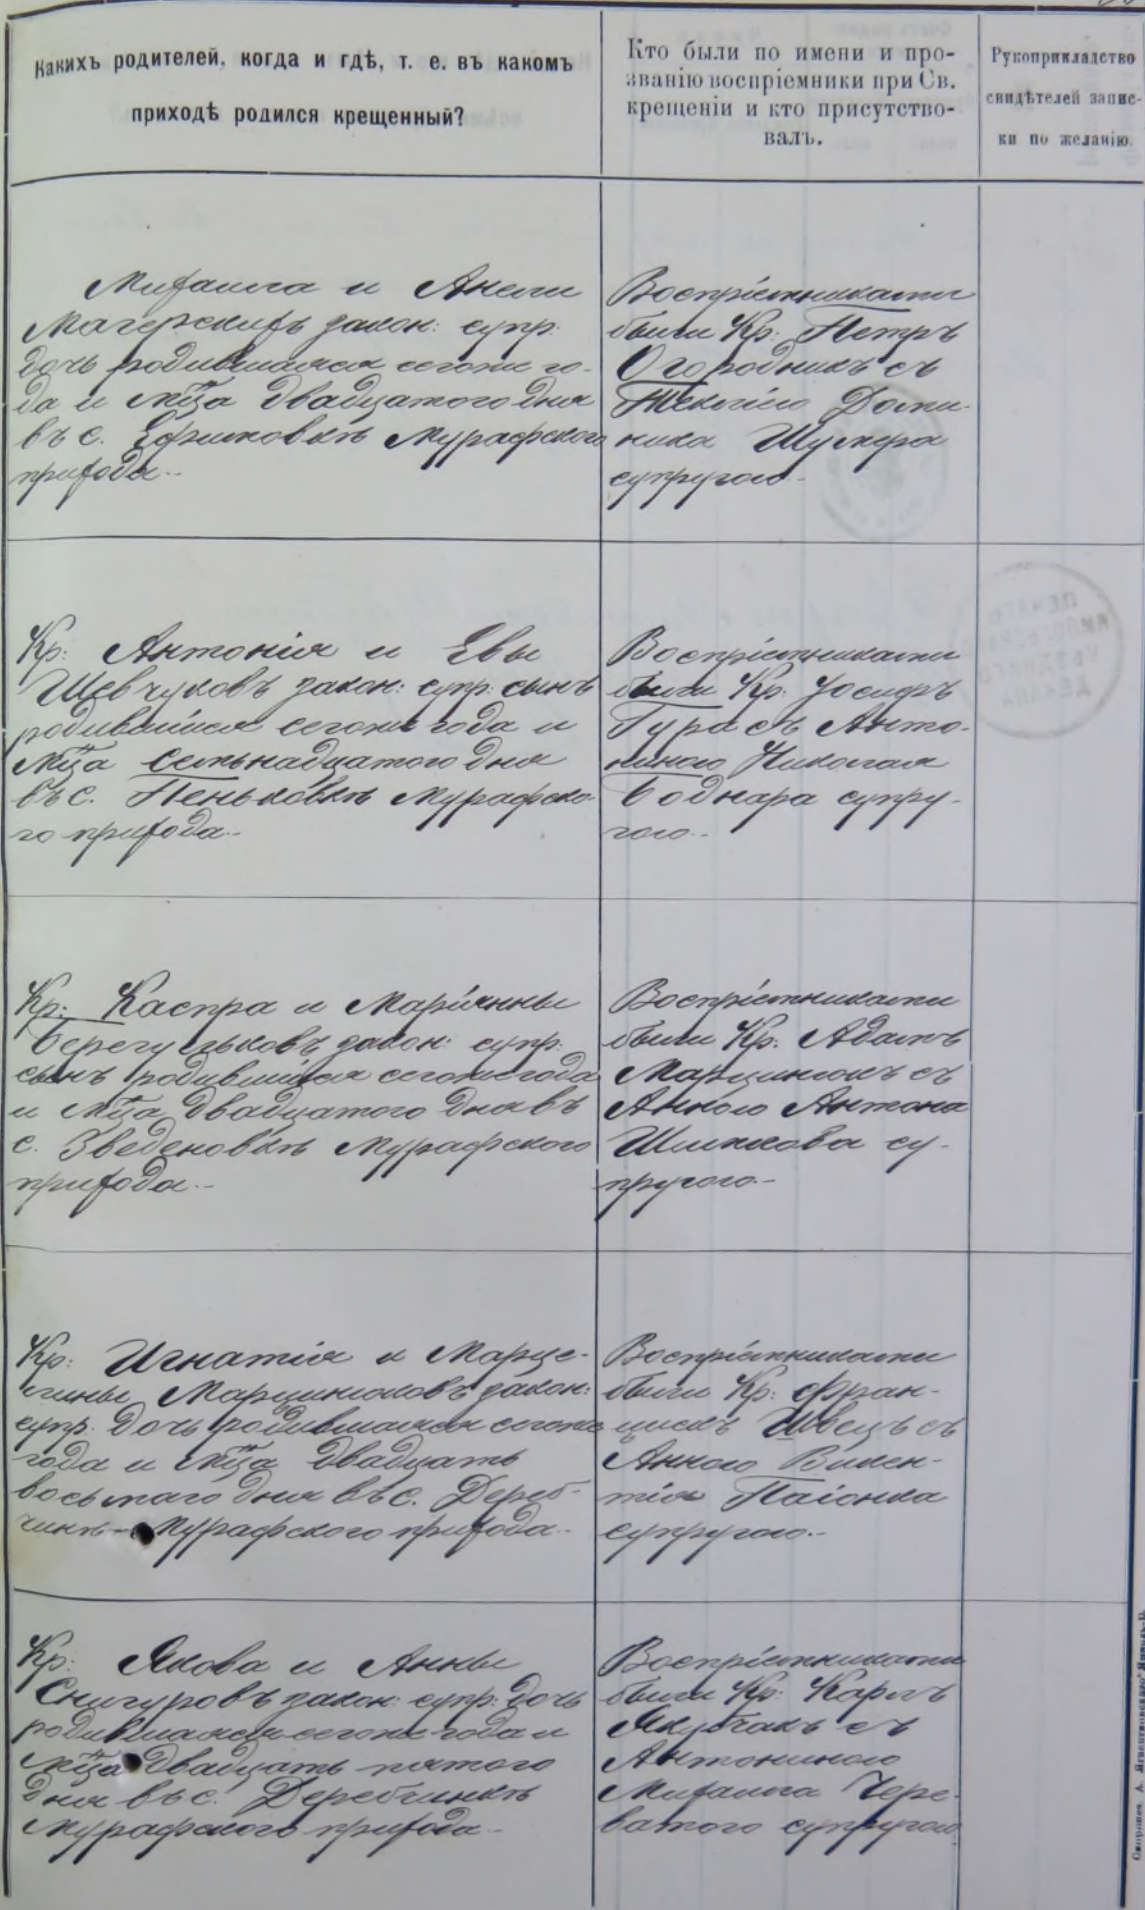 Какихъ родителей, когда и гдѣ, т. е. въ какомъ
приходѣ родился крещенный?
Кто были по имени и про-
званію воспріемники при Св.
крещеніи и кто присутство-
валъ.
Рукоприкладство
свидѣтелей запис-
ки по желанію.
Михаила и Анели
Магерскихъ закон: супр:
дочь родившаяся сегоже го-
да и мѣца двадцатого дня
въ с. Ефимовкѣ Мурафского
прихода.-
Воспріемниками
были Кр: Петръ
Огородникъ съ
Теклею Доми-
ника Шумера
супругою.-
Кр: Антонія и Евы
Шевчуковъ закон: супр: сынъ
родившійся сегоже года и
мѣца семьнадцатого дня
въ с. Пеньковкѣ Мурафско-
го прихода.-
Воспріемниками
были Кр: Іосифъ
Гура съ Анто-
ниною Николая
Боднара супру-
гою.-
ПЕЧАТЬ
УѢЗДНАГО
ДЕКАНА
Кр: Каспра и Маріянны
Берегульковъ закон: супр:
сынъ родившійся сегоже года
и мѣца двадцатого дня въ
с. Зведеновкѣ Мурафского
прихода.-
Воспріемниками
были Кр: Адамъ
Марцинюкъ съ
Анною Антона
супругою.-
Кр: Игнатія и Марце-
лины Марцинюковъ закон:
супр: дочь родившаяся сегоже
года и мѣца двадцать
восьмаго дня въ с. Дереб-
чинѣ - Мурафского прихода.-
Воспріемниками
были Кр: Фран-
цискъ Швецъ съ
Анною Викен-
тія Паіонка
супругою.-
Кр: Якова и Анны
Снигуровъ закон: супр: дочь
родившаяся сегоже года и
мѣца двадцать пятого
дня въ с. Деребчинѣ
Мурафского прихода.-
Воспріемниками
были Кр: Карлъ
Якубчакъ съ
Антониною
Михаила Чере-
ватого супругою